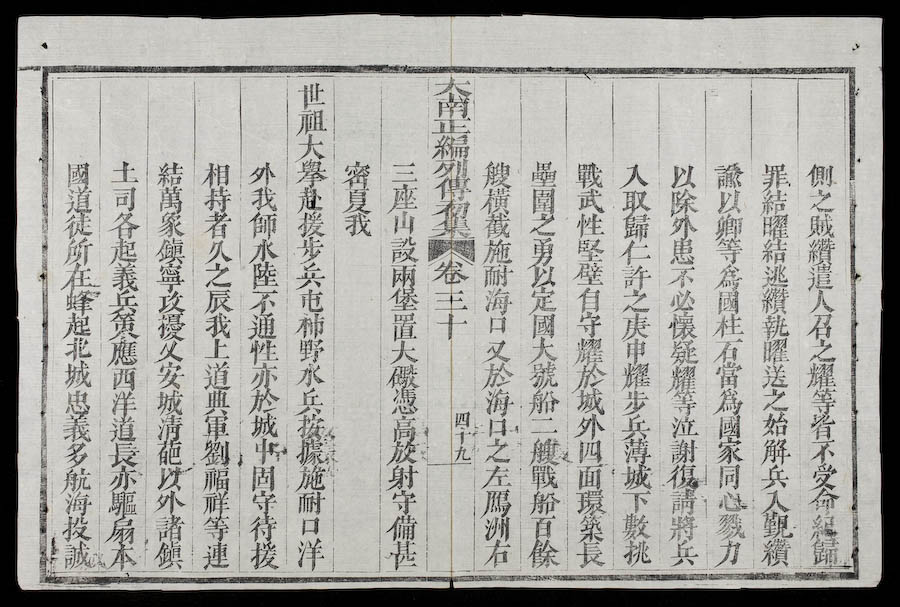 側之賊纘遣人召之耀等皆不受命紀歸
罪結曜結逃纘執曜送之始觧兵入覲纘
諭以卿等爲國柱石當爲國家同心戮力
以除外患不必懷疑耀等泣謝復請將兵
入取歸仁許之庚申耀步兵薄城下數挑
戰武性堅壁自守耀於城外四面環築長
壘圍之勇以定國大號船二艘戰船百餘
艘橫截施耐海口又於海口之左鴈洲右
大南正編列傳初集 卷三十 四十九
三座山設兩堡置大礮憑高放射守備甚
密夏我
世祖大擧赴援步兵屯柿野水兵按據施耐口洋
外我師水陸不通性亦於城中固守待援
相持者久之辰我上道典軍劉福祥等連
結萬象鎭寧攻擾乂安城淸葩以外諸鎭
土司各起義兵策應西洋道長亦驅扇本
國道徒所在蜂起北城忠義多航海投誠